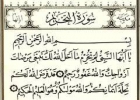 سورة التحريم
بسم الله الرحمن الرحيم
يا أيها النبي لم تحرم ما أحل الله لك تبتغي مرضات
أزواجك والله غفور رحيم قد فرض الله لكم تحلة
أيمانكم والله مولاكم وهو العليم الحكيم